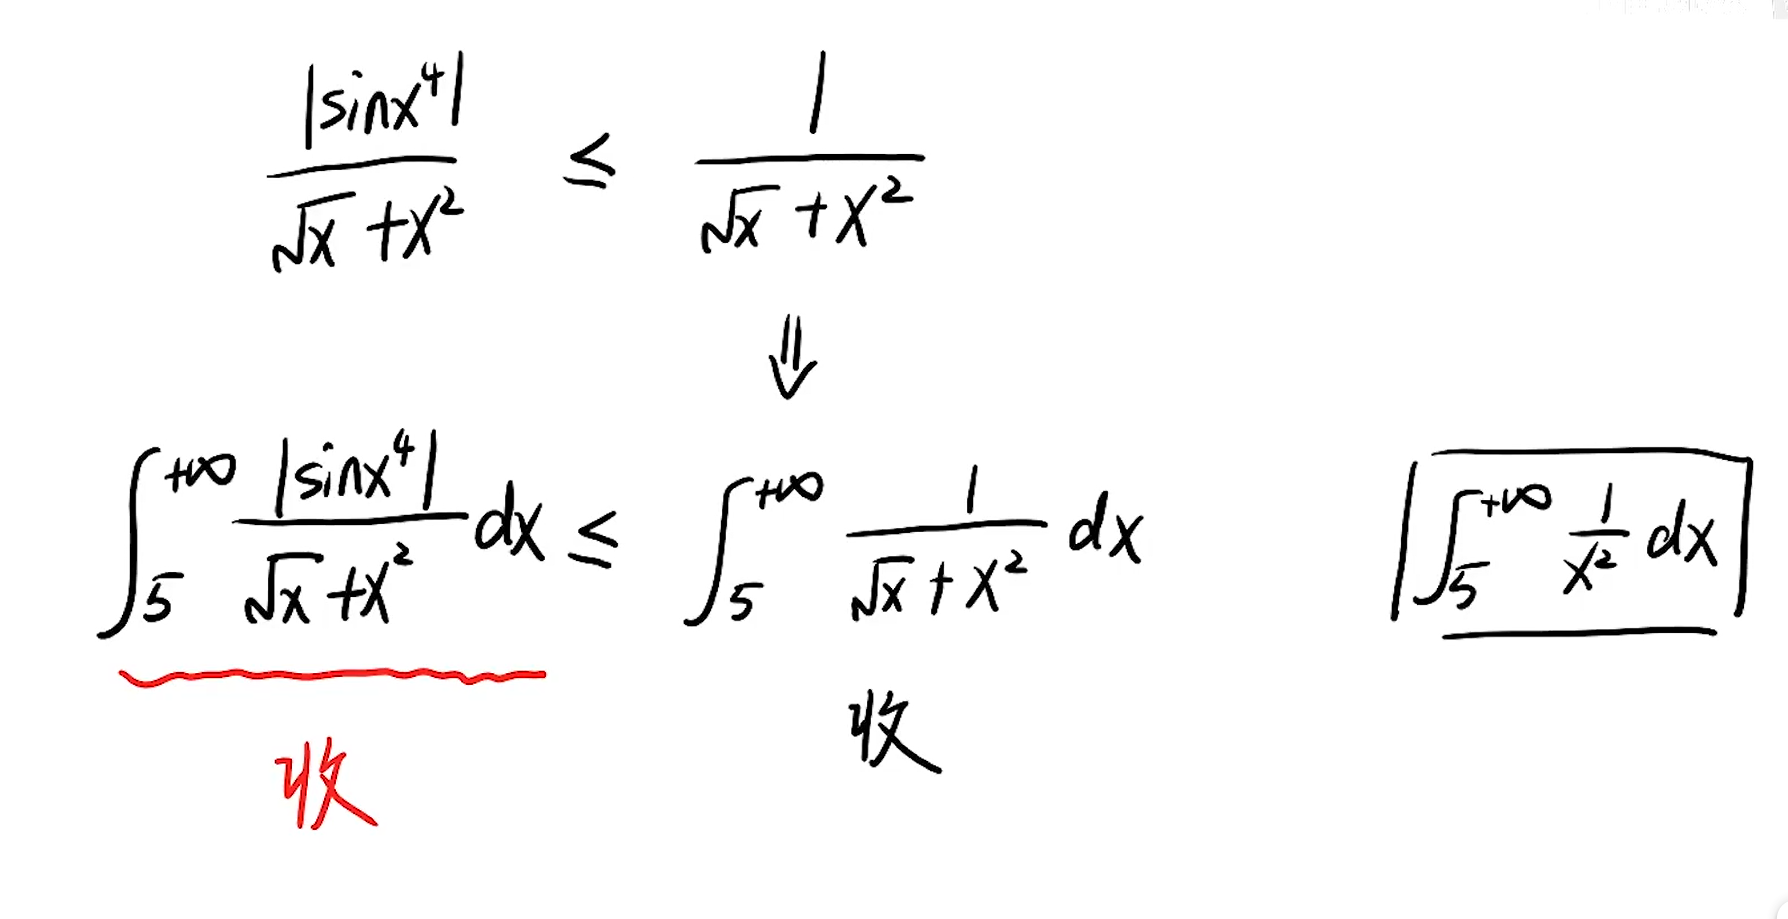 |sinx⁴| / (√x + x²) ≤ 1 / (√x + x²)
⇓
∫₅^{+∞} |sinx⁴| / (√x + x²) dx ≤ ∫₅^{+∞} 1 / (√x + x²) dx    ∫₅^{+∞} 1/x² dx
收
收